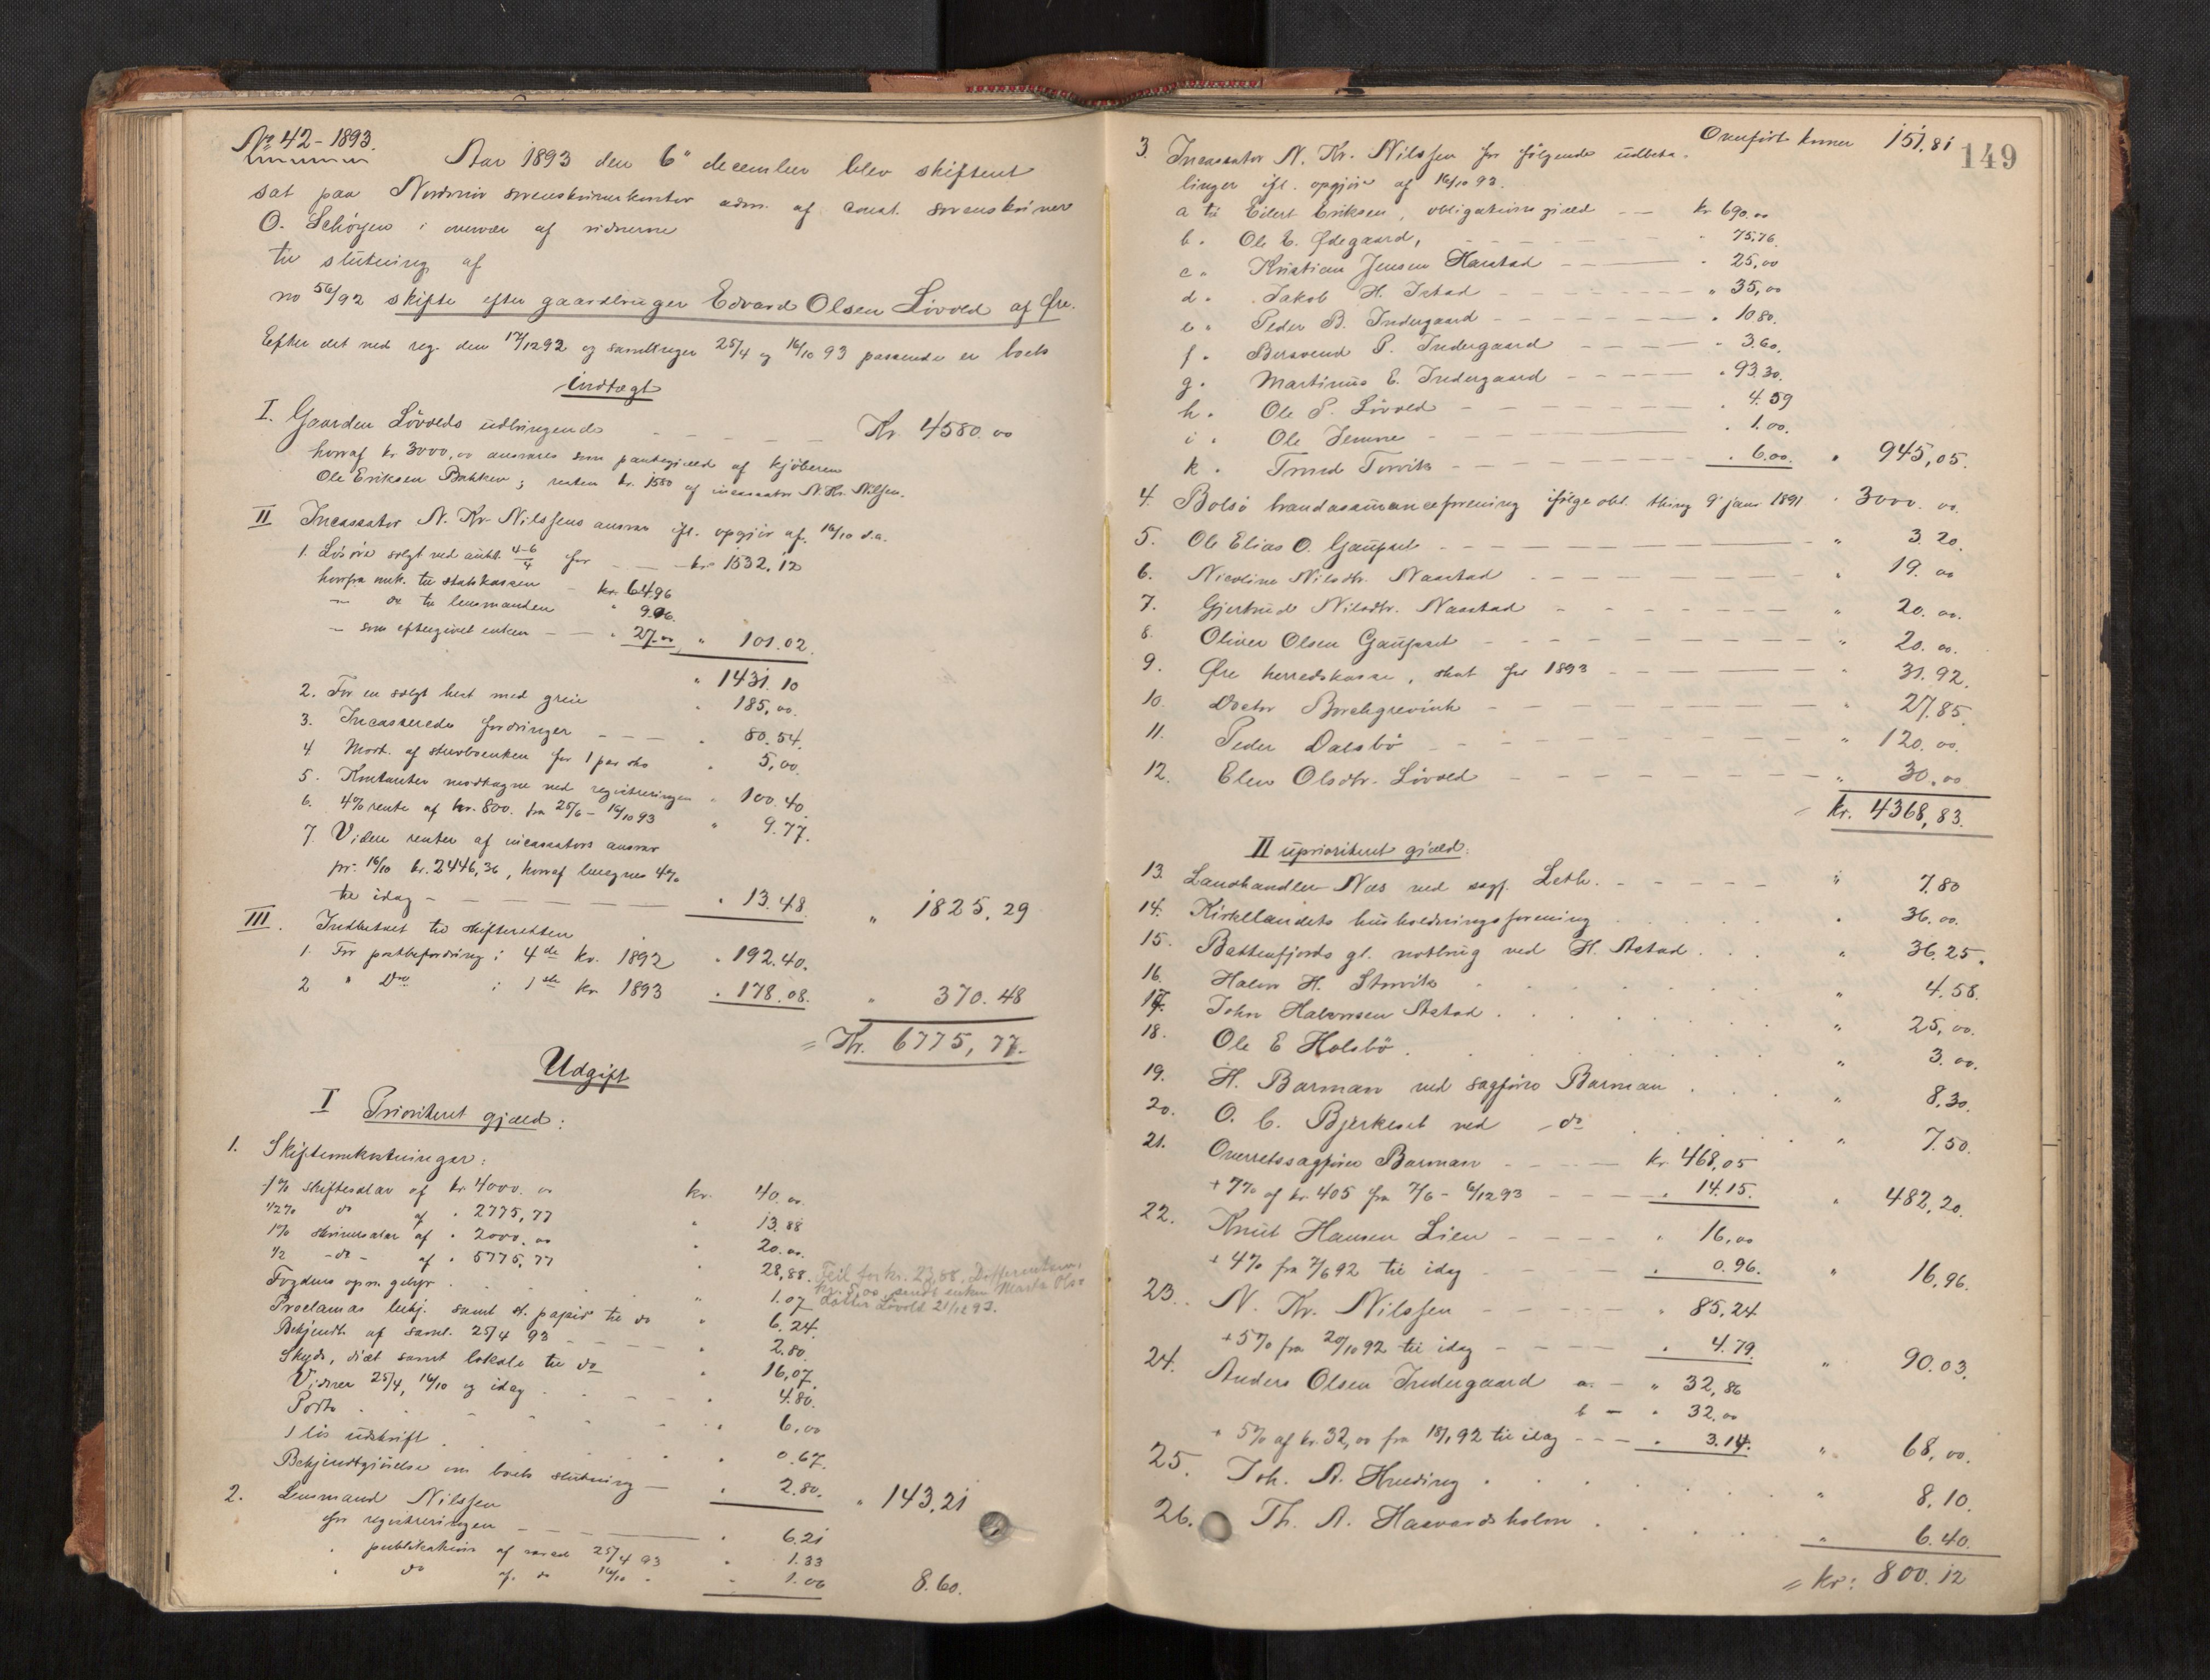 No 42-1893.
Aar 1893 den 6te december blev skifteret
sat paa Nordmør sorenskriverkontor adm. af const. sorenskriver
O. Schøyen i overvær af vidnerne
til slutning af
no 56/92 skifte efter gaardbruger Edvard Olsen Løvold af Øre.
Efter det ved reg. den 17/12 92 og samlinger 25/4 og 16/10 93 passerede er boets
Indtægt
I. Gaarden Løvolds udbringende - - - - Kr. 4580.00
hvoraf kr 3000,00 ansvares som pantegjæld af kjøberen
Ole Eriksen Bakken; resten kr. 1580 af incassator N. Kr. Nilssen.
II Incassator N. Kr. Nilssens ansvar ifl. opgjør af 16/10 d.a.
1. Løsøre solgt ved aukt. 4-6/4 for - - kr 1532,12
hvorfra auk. til statskassen - kr. 64.96
- do til lensmanden " 9.06.
- som eftergivet enken - - " 27.00 " 101.02.
" 1431.10
2. For en solgt hest med greie " 185,00.
3. Incasserede fordringer - - - " 80.54.
4 Modt. af sterboenken for 1 par sko " 5,00.
5. Kontanter modtagne ved registreringen " 100.40
6. 4% rente af kr. 800. fra 25/6 - 16/10 93 " 9.77.
7. Videre renter af incassators ansvar
pr. 16/10 kr. 2446,36, hvoraf beregnes 4%
til idag - - - - " 13.48. " 1825,29
III. Indbetalt til skifteretten
1. For postbefordring i 4de kv. 1892 " 192.40.
2 " Do i 1ste kv. 1893 " 178.08. " 370.48
= Kr. 6775,77.
Udgift
I Prioriteret gjæld:
1. Skifteomkostninger:
1% skiftesalær af kr 4000.00 kr. 40.00
1/2% do af " 2775,77 " 13.88
1% skriversalær af " 2000,00 " 20.00.
1/2 - do - af " 5775,77 " 28,88. Feil for kr. 23,88. Differentsen,
Fogdens opn. gebyr . " 1.07 kr. 5,00 sendt enken Marta Ols-
datter Løvold 21/12 93.
Proclamas bekj. samt st. papir til do " 6.24.
Bekjendt. af saml. 25/4 93 - - " 2.80.
Skyds, diæt samt lokale til do " 16,07.
Vidner 25/4, 16/10 og idag . - - " 4.80.
Porto . . - - " 6,00
1 løs udskrift . . . " 0.67.
Bekjendtgjørelse om boets slutning - " 2.80. " 143,21
2. Lensmand Nilssen
for registreringen - - - " 6.21
" publikation af saml 25/4 93 " 1.33
" do af do 16/10 " " 1.06 8.60.
149
Overført kroner 151,81
3. Incassator N. Kr. Nilssen for følgende udbeta-
linger ifl. opgjør af 16/10 93.
a til Eilert Eriksen, obligationsgjæld - - kr 690.00
b. Ole E. Ødegaard, - - - " 75,76.
c " Kristian Jensen Harstad - - - " 25,00
d. Jakob H. Istad - - - " 35,00
e " Peder B. Indergaard - - - " 10.80.
f. Bersvend P. Indergaard - - - " 3.60.
g. Martinus E. Indergaard - - - " 93.30.
h. Ole P. Løvold - - - " 4.59
i " Ole Jemne - - - " 1.00.
k. Trond Torvik - - - " 6.00. " 945,05.
4. Bolsø brandassuranceforening ifølge obl. thingl. 9 janr 1891 " 3000.00.
5. Ole Elias O. Gaupset - - - " 3.20.
6. Nicoline Nilsdtr. Naastad - - - " 19.00
7. Gjertrud Nilsdtr. Naastad - - - " 20.00.
8. Oliver Olsen Gaupset - - - " 20.00.
9. Øre herredskasse, skat for 1893 - - - " 31.92.
10. Doctor Borchgrevink - - - " 27,85.
11. Peder Dalsbø - - - " 120.00.
12. Elen Olsdtr. Løvold - - - " 30.00
= kr. 4368,83.
II uprioriteret gjæld:
13. Landhandler Næs ved sagf. Leth. - - - " 7.80
14. Kirkelandets husholdningsforening . . . " 36.00.
15. Battenfjords gl. notbrug ved H. Astad . . . " 36.25.
16. Halvor H. Storvik . . . " 4.58.
17. John Halvorsen Astad . . . " 25,00.
18. Ole E Holsbø . . . " 3.00.
19. H. Barman ved sagfører Barman . . . " 8.30.
20. O. C. Bjerkeset ved do . . . " 7.50.
21. Overretssagfører Barman - - - kr. 468,05
+ 7% af kr. 405 fra 7/6 - 6/12 93 - - - " 14.15. " 482,20.
22. Knut Hansen Lien - - - " 16,00
+ 4% fra 7/6 92 til idag - - - " 0.96. " 16,96.
23. N. Kr. Nilssen - - - " 85,24
+ 5% fra 20/10 92 til idag - - - " 4.79. " 90.03.
24. Anders Olsen Indergaard a. - " 32,86
b - " 32,00
+ 5% af kr. 32,00 fra 18/1 92 til idag - - - " 3.14. " 68,00.
25. Joh. A. Hunding . . . " 8.10.
26. Th. A. Haavardsholm . . . " 6.40.
= kr: 800.12